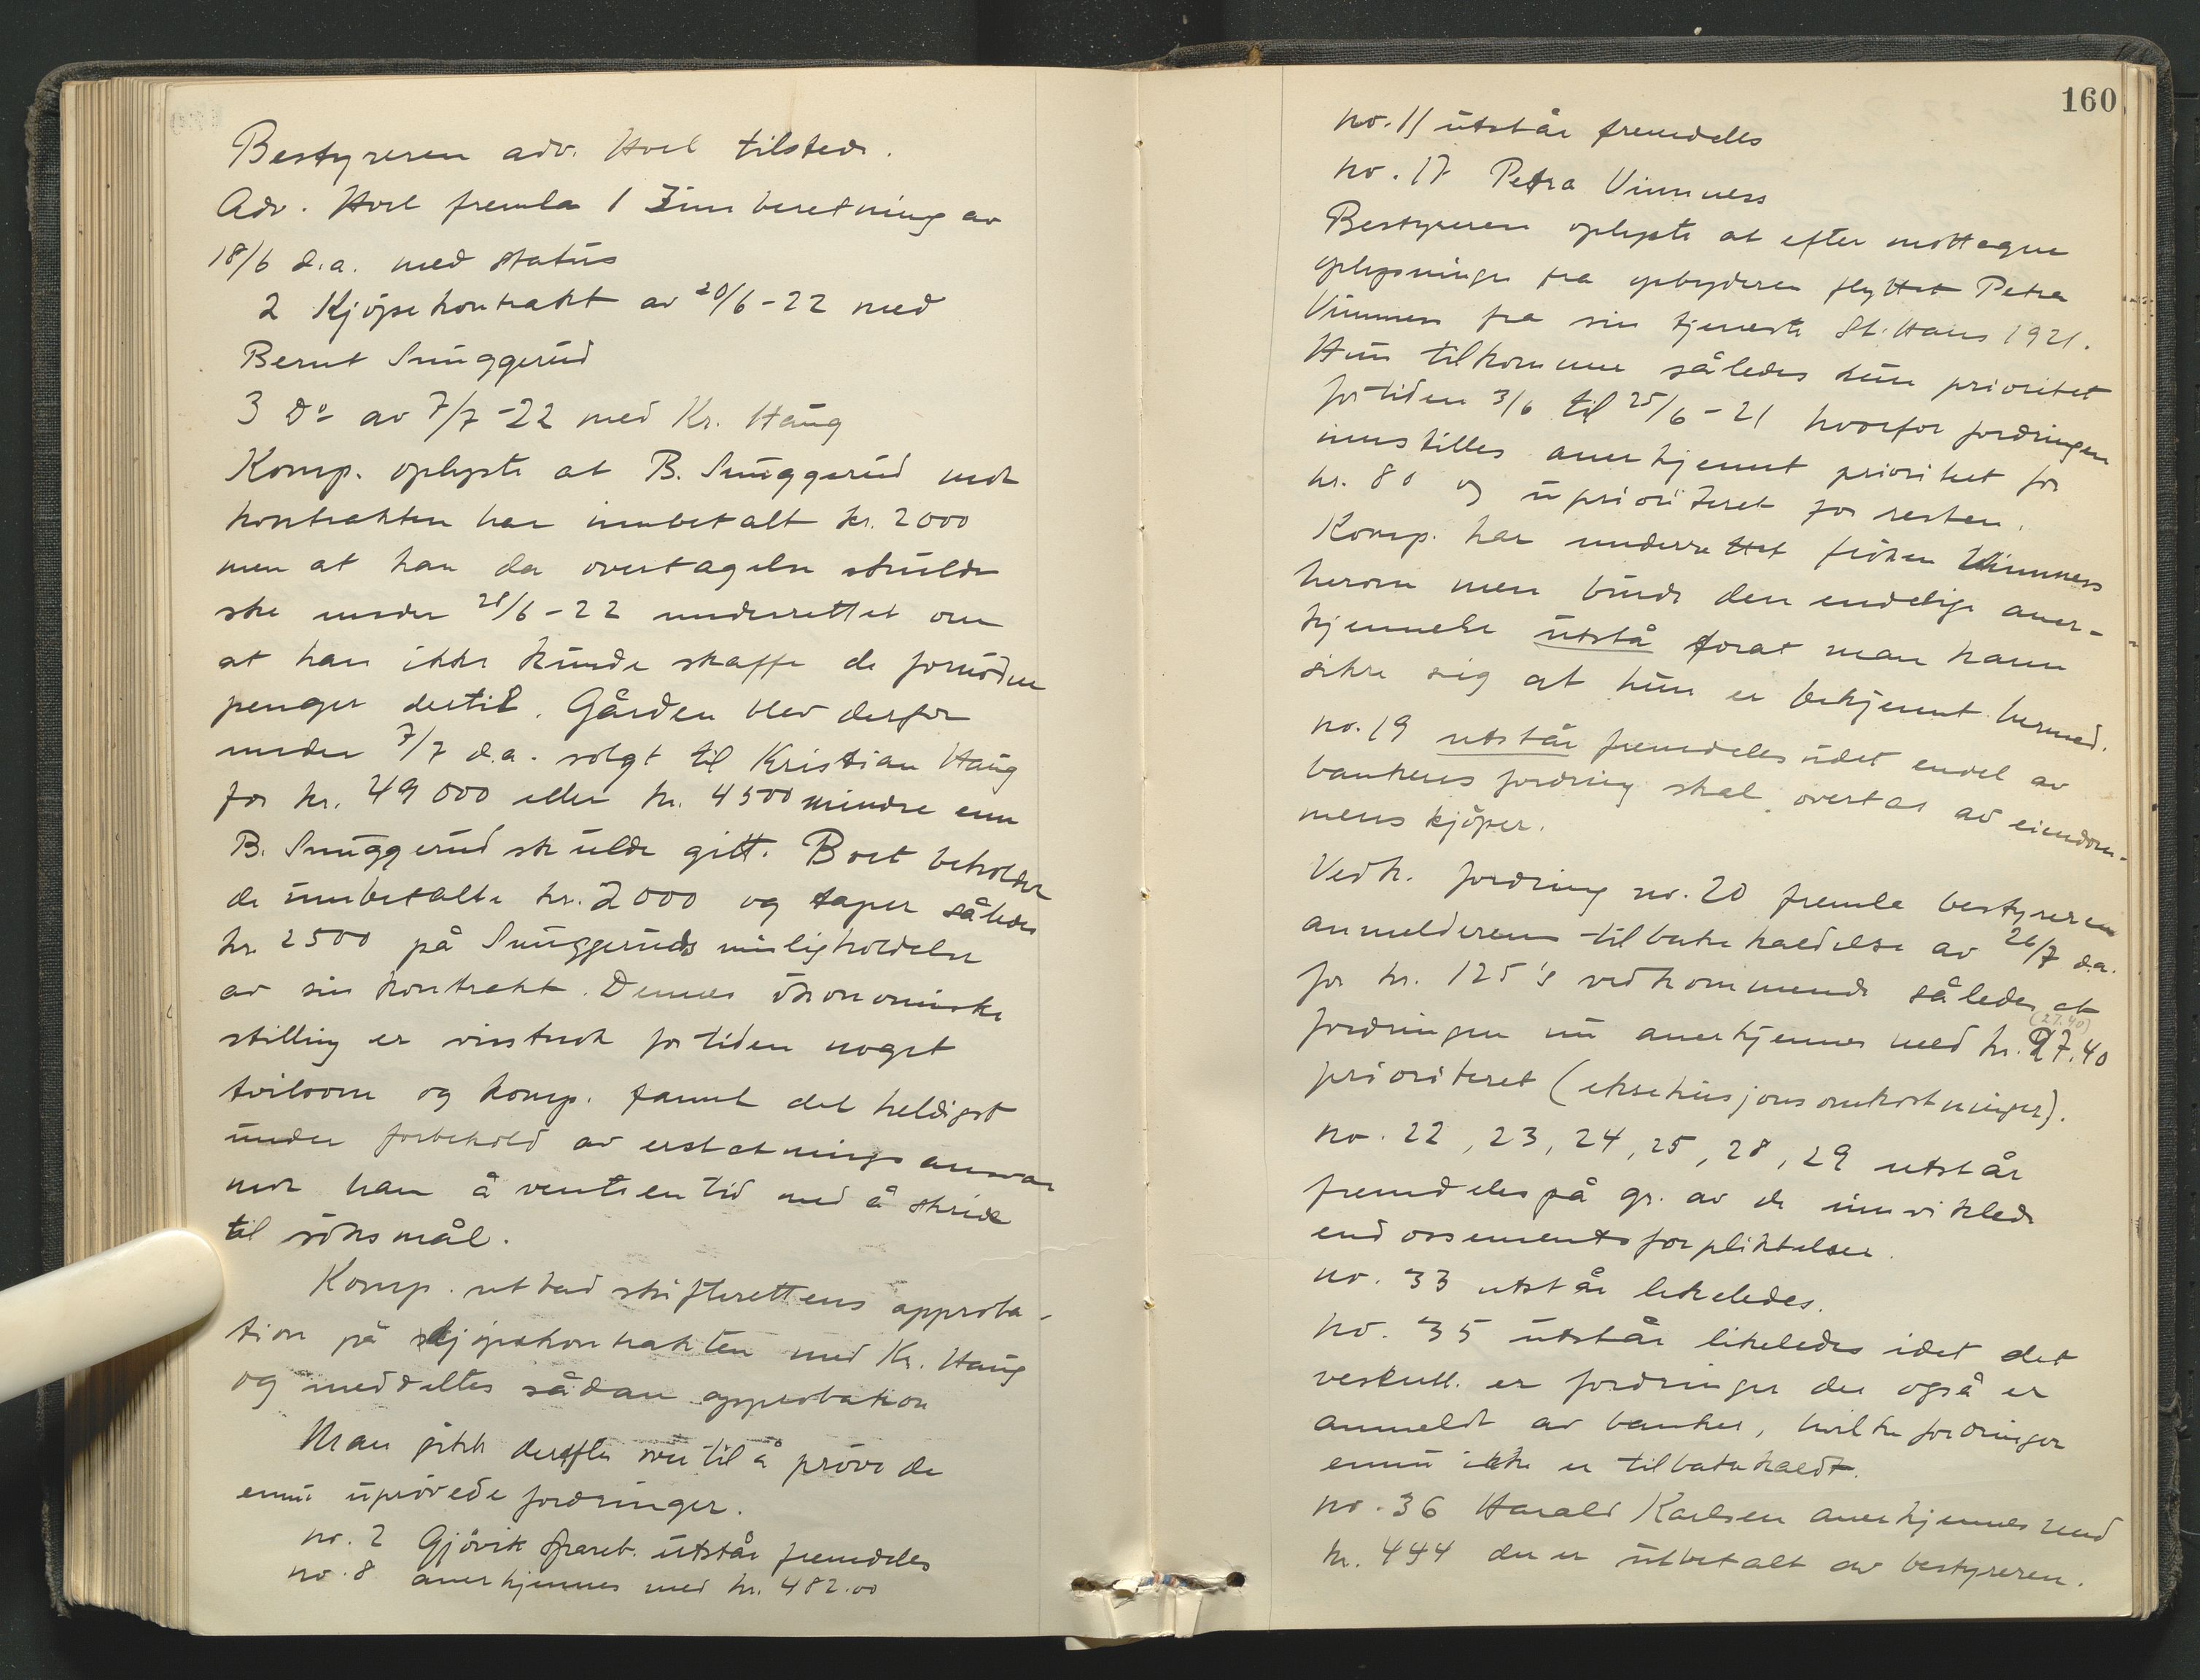 Bestyreren adv. Hoel tilstede.
Adv. Hoel fremla 1 Innberetning av
18/6 d.a. med status
2 Kjöpekontrakt av 20/6-22 med
Bernt Snuggerud
3 Do av 7/7-22 med Kr. Haug
Komp. oplyste at B. Snuggerud ved
kontrakten har innbetalt kr. 2000
men at han da overtagelse skulde
ske under 28/6-22 underrettet om
at han ikke kunde skaffe de fornödne
penger dertil. Gården blev derfor
under 7/7 d.a. solgt til Kristian Haug
for kr. 49000 eller kr. 4500 mindre enn
B. Snuggerud skulde gitt. Boet beholder
de innbetalte kr. 2000 og taper således
kr. 2500 på Snuggeruds misligholdelse
av sin kontrakt. Dennes ökonomiske
stilling er visstnok for tiden noget
tvilsom og komp. fannt det heldigst
under forbehold av erstatningsansvar
mot ham å vente en tid med å skride
til söksmål.
Komp. utbad skifterettens approba-
tion på kjöpekontrakten med Kr. Haug
og meddeltes sådan approbation
Man gikk derefter over til å pröve de
ennu uprövede fordringer.
no. 2 Gjövik Spareb. utstår fremdeles
no. 8 anerkjennes med kr. 482.00
160
no. 11 utstår fremdeles
no. 17 Petra Vinnness
Bestyreren oplyste at efter mottagne
oplysninger fra opbyderen flyttet Petra
Vinnness fra sin tjeneste St. Hans 1921.
Hun tilkommer således kun prioritet
for tiden 3/6 til 25/6-21 hvorfor fordringen
innstilles anerkjennt prioritet for
kr. 80 og uprioriteret for resten.
Komp. har underrettet fröken Vinnness
herom men burde den endelige aner-
kjennelse utstå forat man kann
sikre sig at hun er bekjennt hermed.
no. 19 utstår fremdeles idet endel av
bankens fordring skal overtas av eiendom-
mens kjöper.
Vedk. fordring no. 20 fremla bestyreren
anmelderens tilbakekaldelse av 26/7 d.a.
for kr. 125's vedkommende således at
(27.40)
fordringen nu anerkjennes med kr. 27.40
prioriteret (eksekusjonsomkostninger).
no. 22, 23, 24, 25, 28, 29 utstår
fremdeles på gr. av de innviklede
endossementsforpliktelser.
no. 33 utstår likeledes.
no. 35 utstår likeledes idet det
vesentl. er fordringer der også er
anmeldt av banker, hvilke fordringer
ennu ikke er tilbakekaldt.
no. 36 Harald Karlsen anerkjennes med
kr. 444 der er utbetalt av bestyreren.